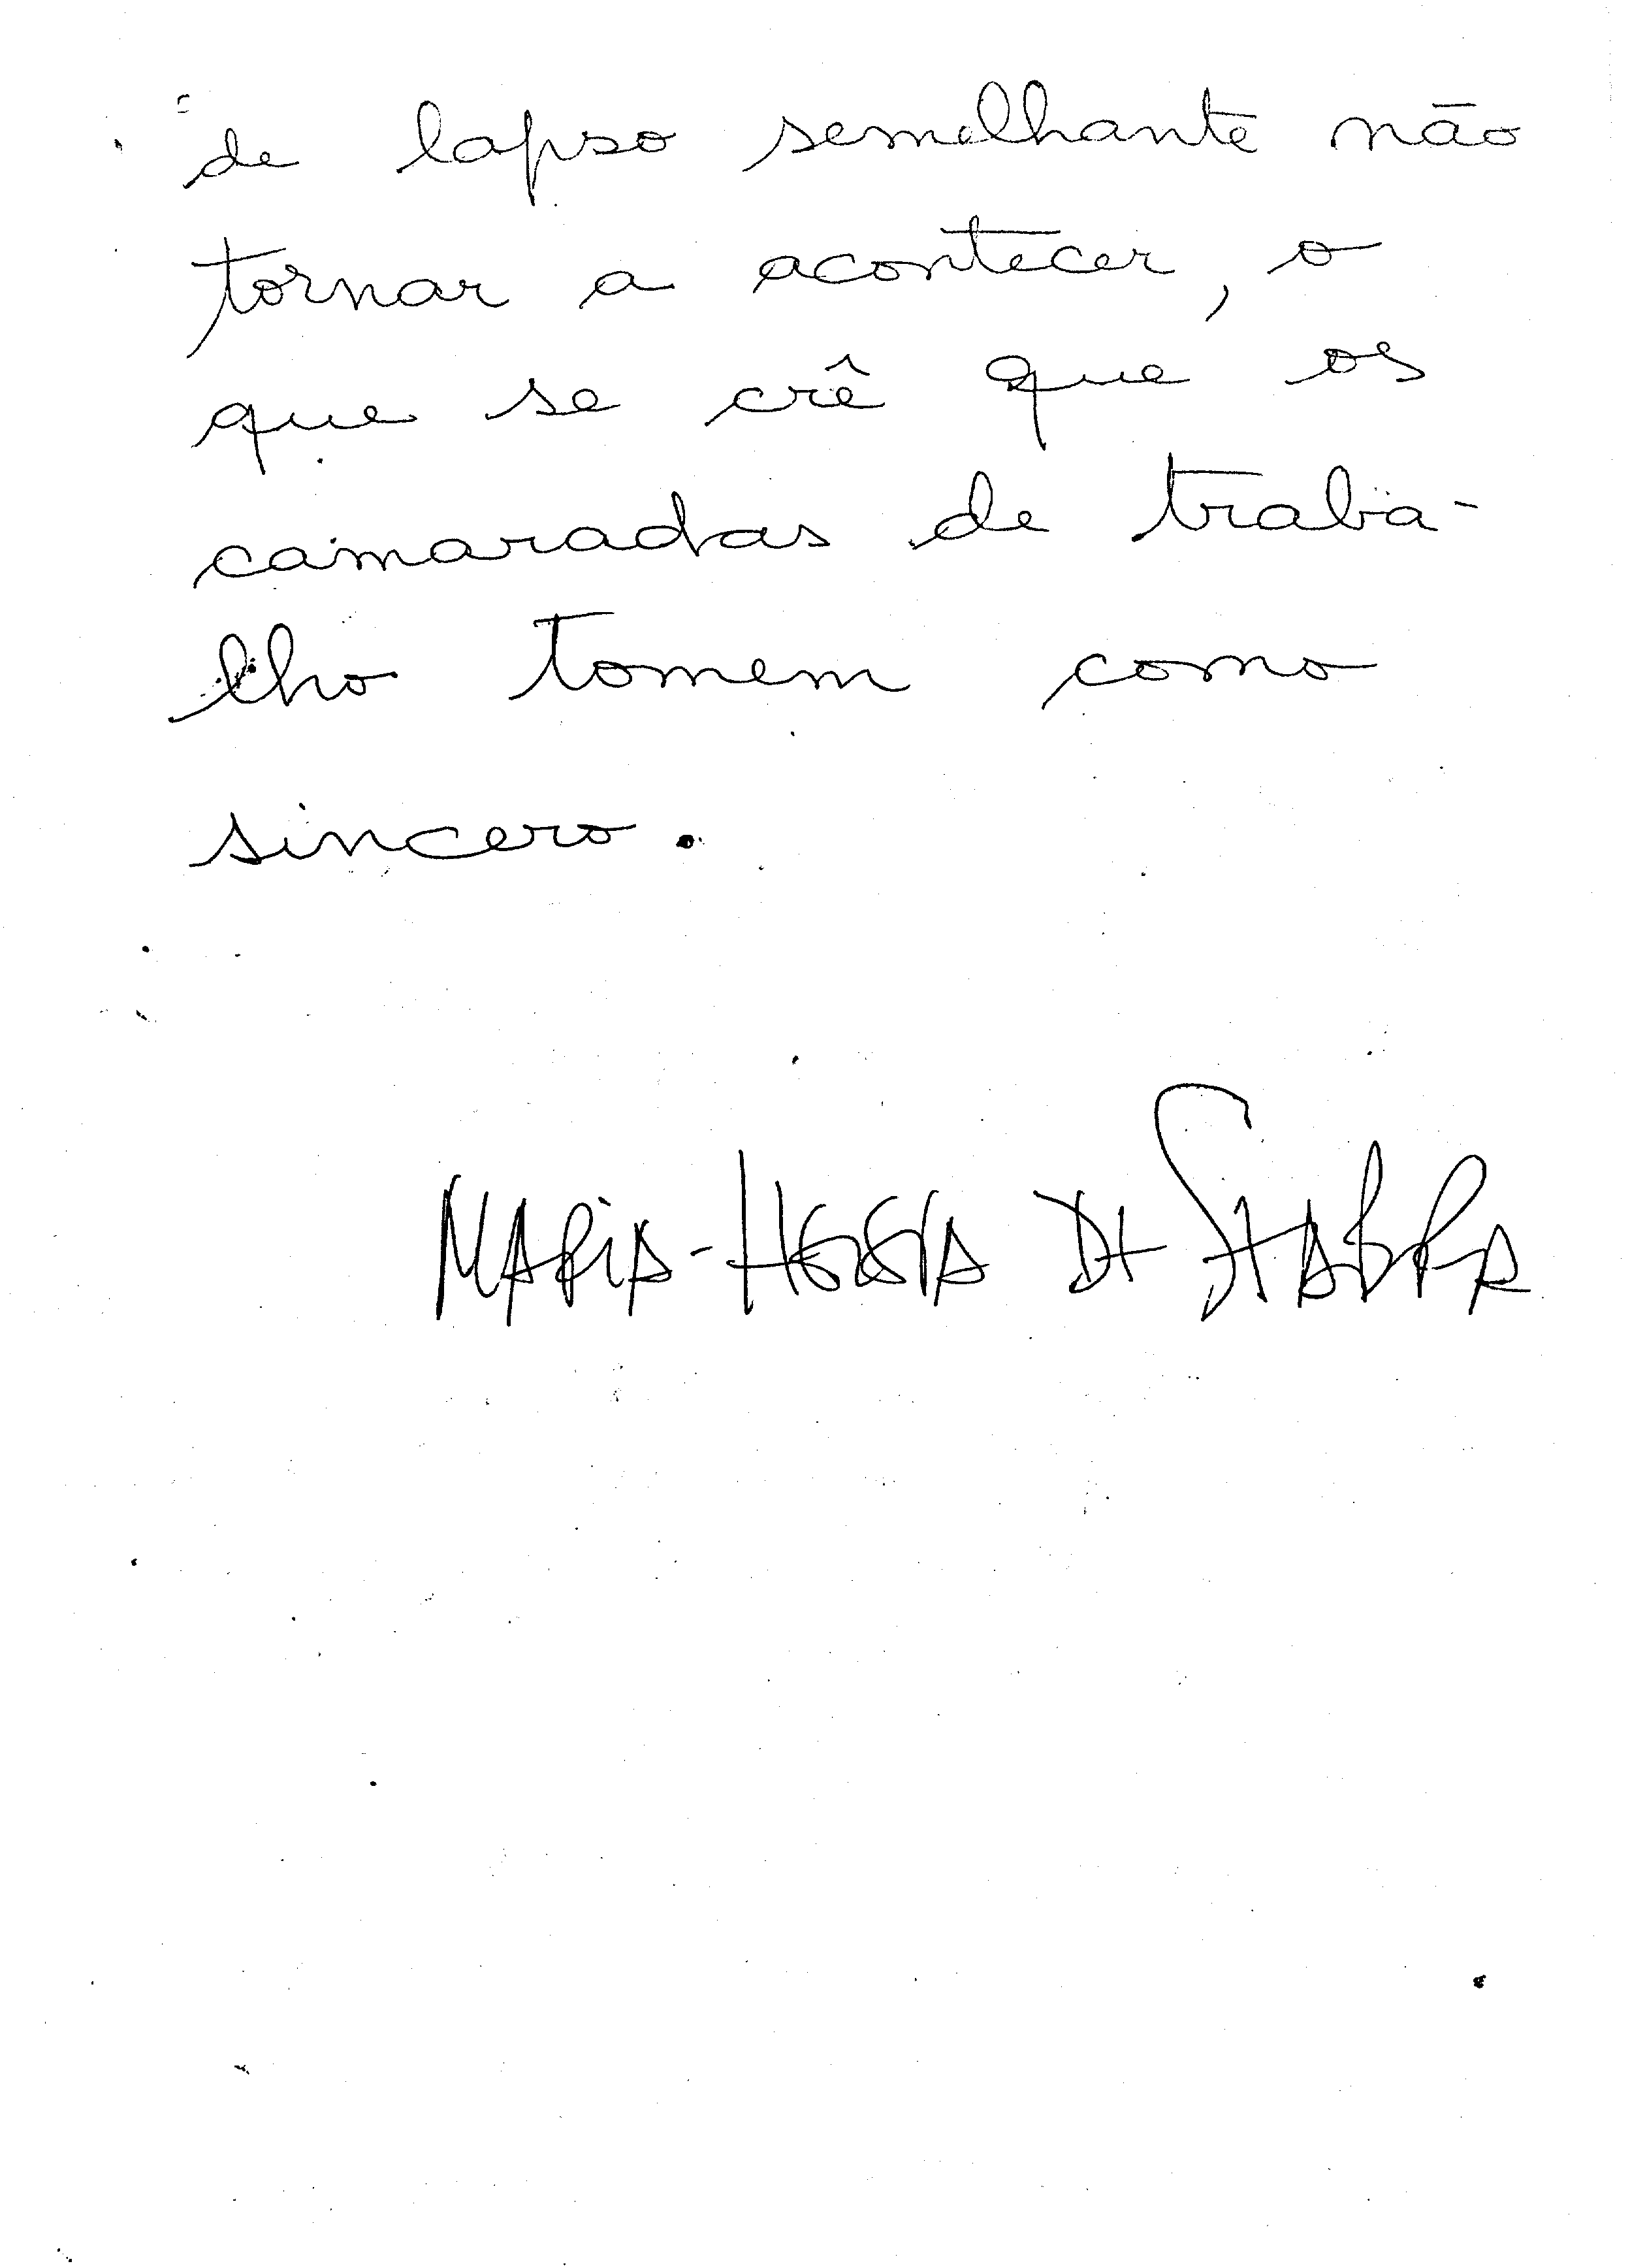 de lapso semelhante não
tornar a acontecer, o
que se crê que os
camaradas de traba-
lho tomem como
sincero.
MARIA-